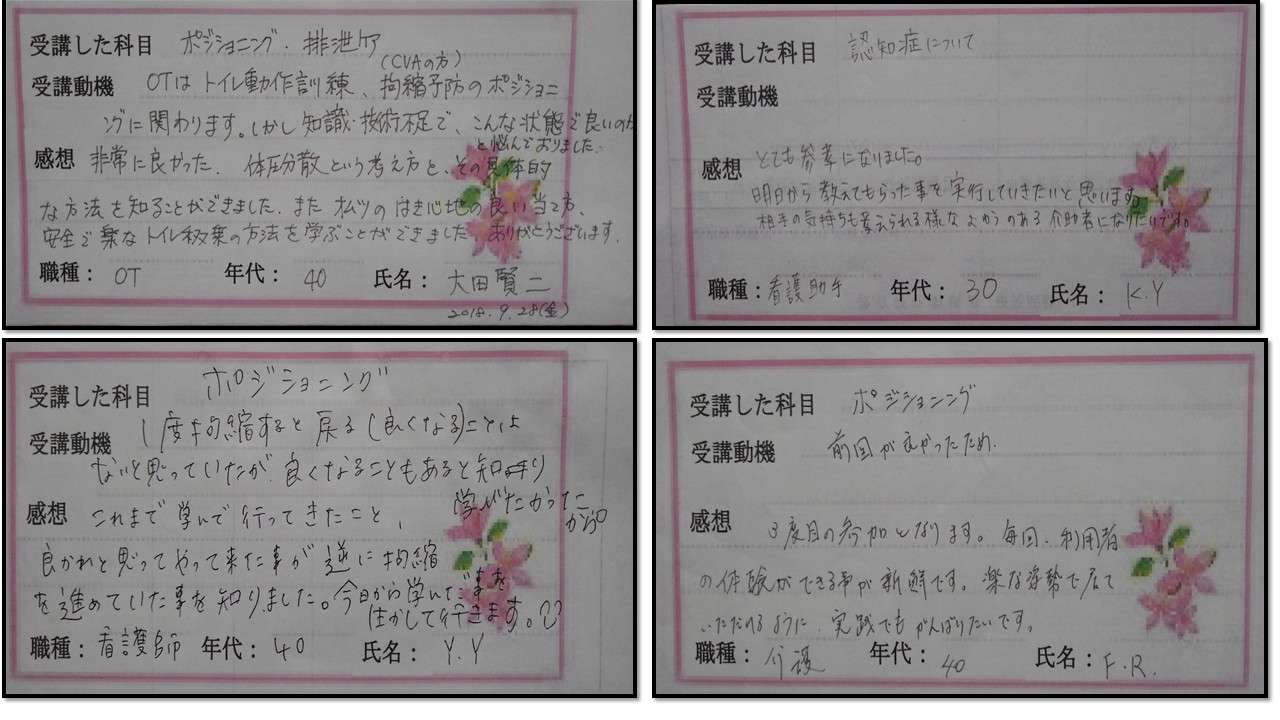 受講した科目 ポジショニング・排泄ケア
受講動機 OTはトイレ動作訓練、拘縮予防のポジショニ
(CVAの方)
ングに関わります。しかし知識・技術不足で、こんな状態で良いのか
と悩んでおりました。
感想 非常に良かった。体圧分散という考え方と、その具体的
な方法を知ることができました。また オムツの はき心地の良い当て方、
安全で楽なトイレ移乗の方法を学ぶことができました。ありがとうございます。
職種: OT 年代: 40 氏名: 大田賢二
2018.9.28(金)
受講した科目 認知症について
受講動機
感想 とても参考になりました。
明日から教えてもらった事を実行していきたいと思います。
相手の気持ちも考えられる様な よゆうのある 介助者になりたいです。
職種:看護助手 年代: 30 氏名: K.Y
受講した科目 ポジショニング
受講動機 1度拘縮すると戻る(良くなる)ことは
ないと思っていたが、良くなることもあると知り
学びたかった
から。
感想 これまで学んで行ってきたこと、
良かれと思ってやって来た事が逆に拘縮
を進めていた事を知りました。今日から学いだ事を
生かして行きます。
職種: 看護師 年代: 40 氏名: Y.Y
受講した科目 ポジショニング
受講動機 前回が良かったため。
感想 3度目の参加となります。毎回、利用者
の体験ができる事が新鮮です。楽な姿勢で居て
いただけるように、実践でもがんばりたいです。
職種: 介護 年代: 40 氏名: F.R.